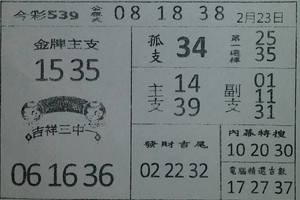 今彩539 08 18 38 2月23日
金牌主支
15 35
吉祥三中
06 16 36
孤支 34
第一選擇
25
35
主支
14
39
副支
01
11
31
發財吉尾
02 22 32
內幕特搜
10 20 30
電腦精選吉數
17 27 37